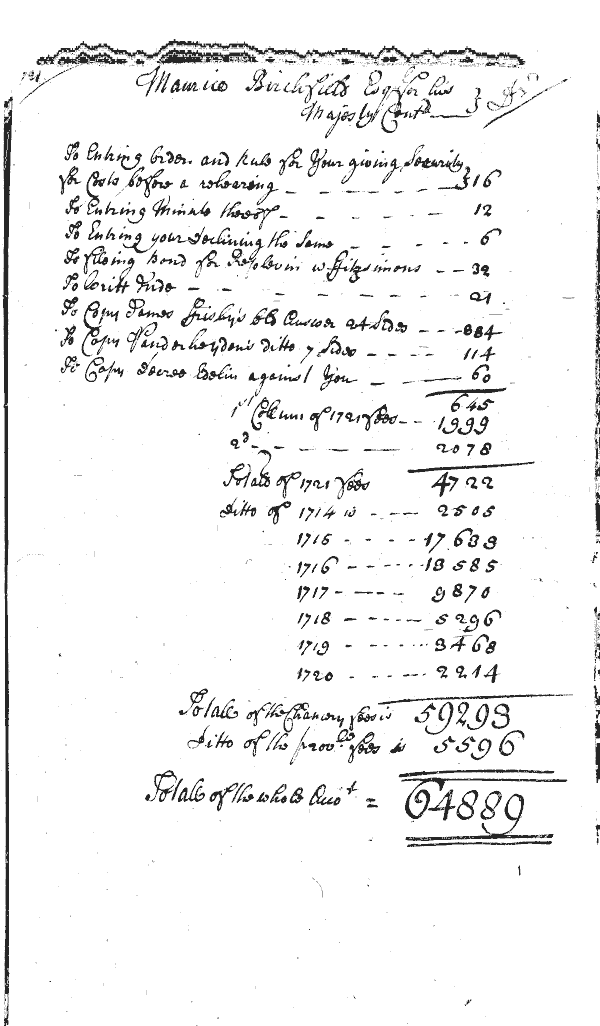 1721
Maurice Birchfield Esqr for his
Majesty Contd Dr
To Entring order and Rule for Your giving Security
for Costs before a rehearing 16
To Entring Minute thereof 12
To Entring your declining the Same 6
To fileing bond for Replevin w Fitzsimons 32
To Writt 21
To Copy James Frisby's Answer 24 Sides 384
To Copy Vanderheyden's ditto 7 Sides 114
To Copy decree Edelin against You 60
645
1st Column of 1721 fees 1999
2d 2078
Totall of 1721 fees 4722
Ditto of 1714 is 2505
1715 17633
1716 13585
1717 9870
1718 5296
1719 3468
1720 2214
Totall of the Chancery fees is 59293
Ditto of the provll fees is 5596
Totall of the whole Amot = 64889
1